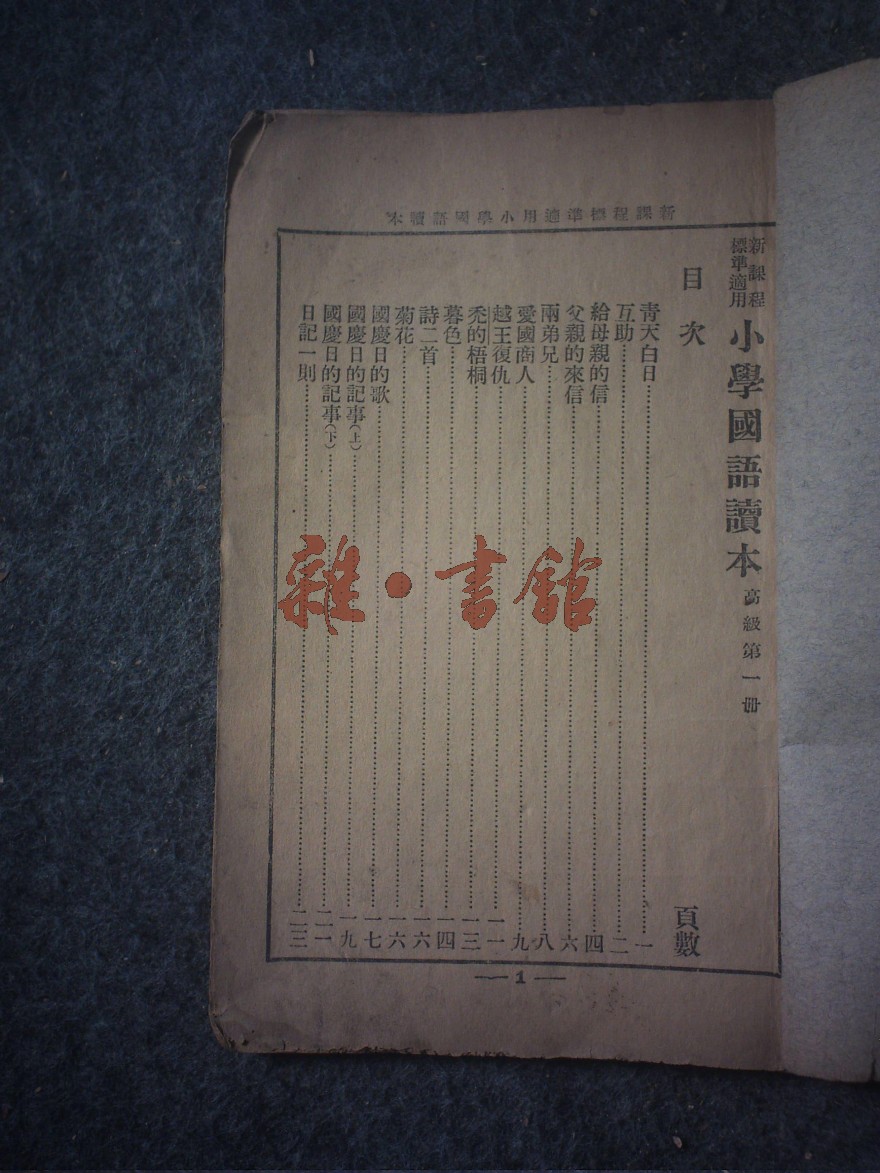 新課程標準適用小學國語讀本
新課程標準適用 小學國語讀本 高級第一冊
目次 頁數
青天白日……一
互助……二
給母親的信……四
父親的來信……六
兩弟兄……八
愛國商人……九
越王復仇……一一
禿的梧桐……一三
暮色……一四
詩二首……一六
菊花……一六
國慶日的歌……一七
國慶日的記事(上)……一九
國慶日的記事(下)……二一
日記一則……二三
— 1 —
雜·書館